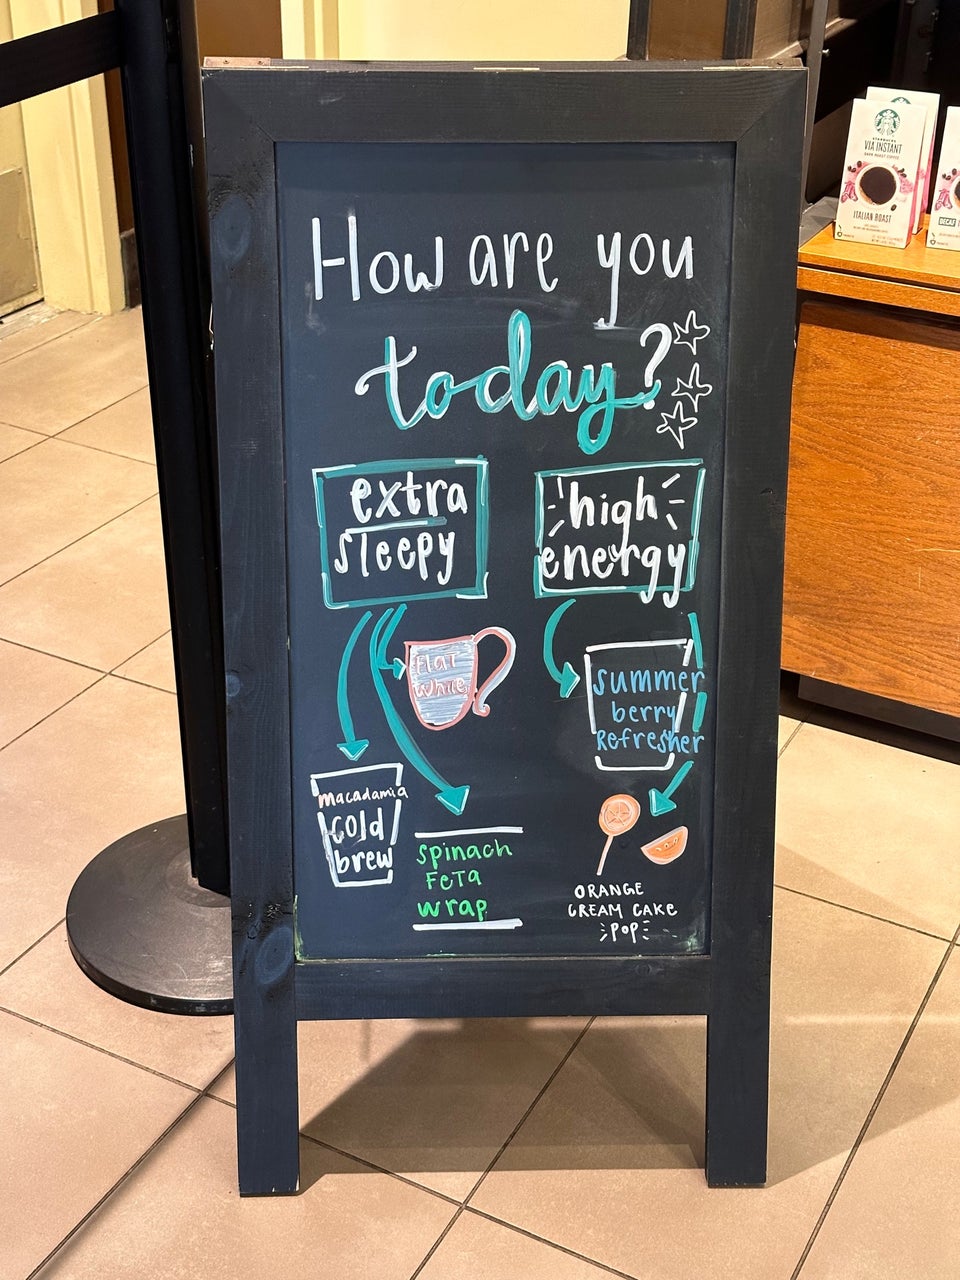 How are you
today?
extra
sleepy
high
energy
flat
white
summer
berry
Refresher
macadamia
cold
brew
spinach
Feta
wrap
ORANGE
CREAM CAKE
POP
STARBUCKS
VIA INSTANT
DARK ROAST COFFEE
ITALIAN ROAST
DECAF